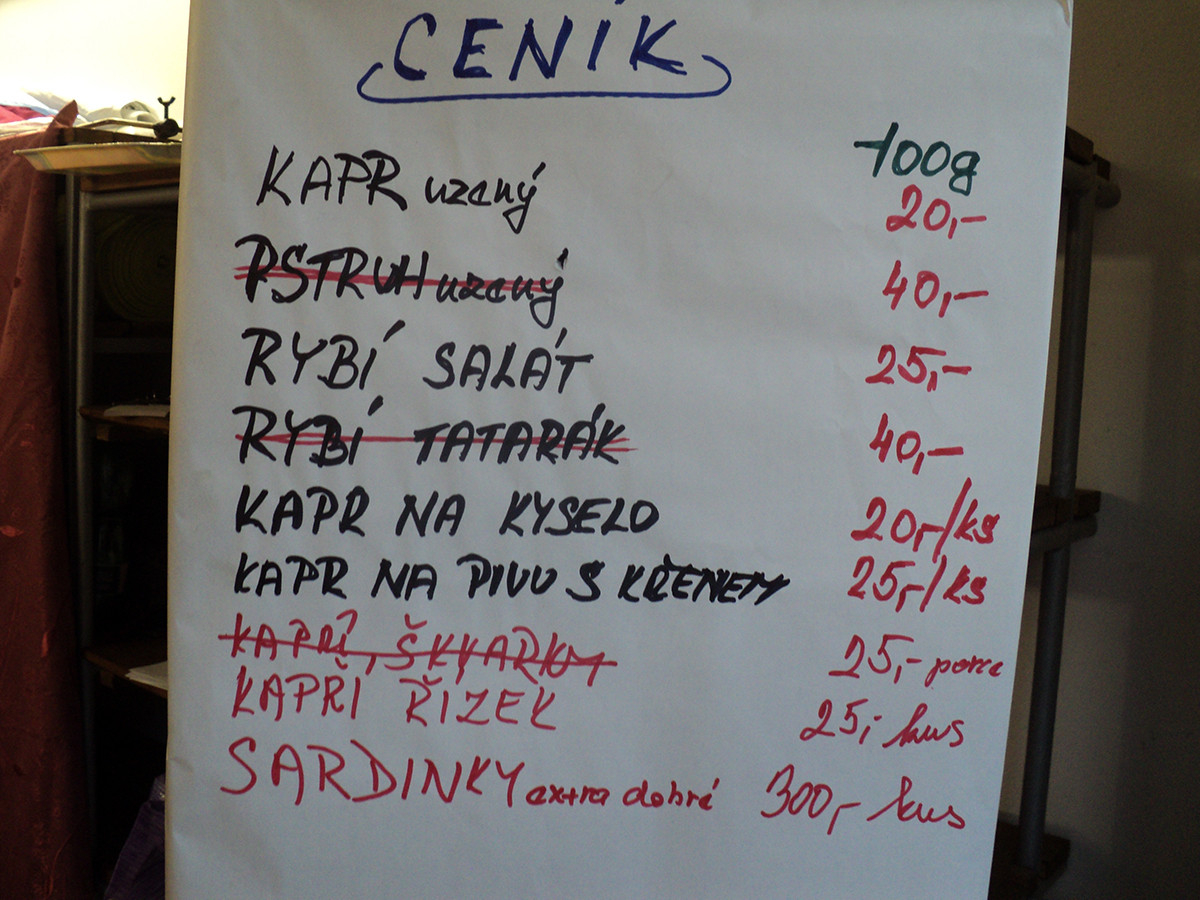 CENÍK
100g
KAPR uzený 20,-
PSTRUH uzený 40,-
RYBÍ SALÁT 25,-
RYBÍ TATARÁK 40,-
KAPR NA KYSELO 20,-/ks
KAPR NA PIVU S KŘENEM 25,-/ks
KAPŘÍ ŠKVARKY 25,- porce
KAPŘÍ ŘÍZEK 25,- kus
SARDINKY extra dobré 300,- kus